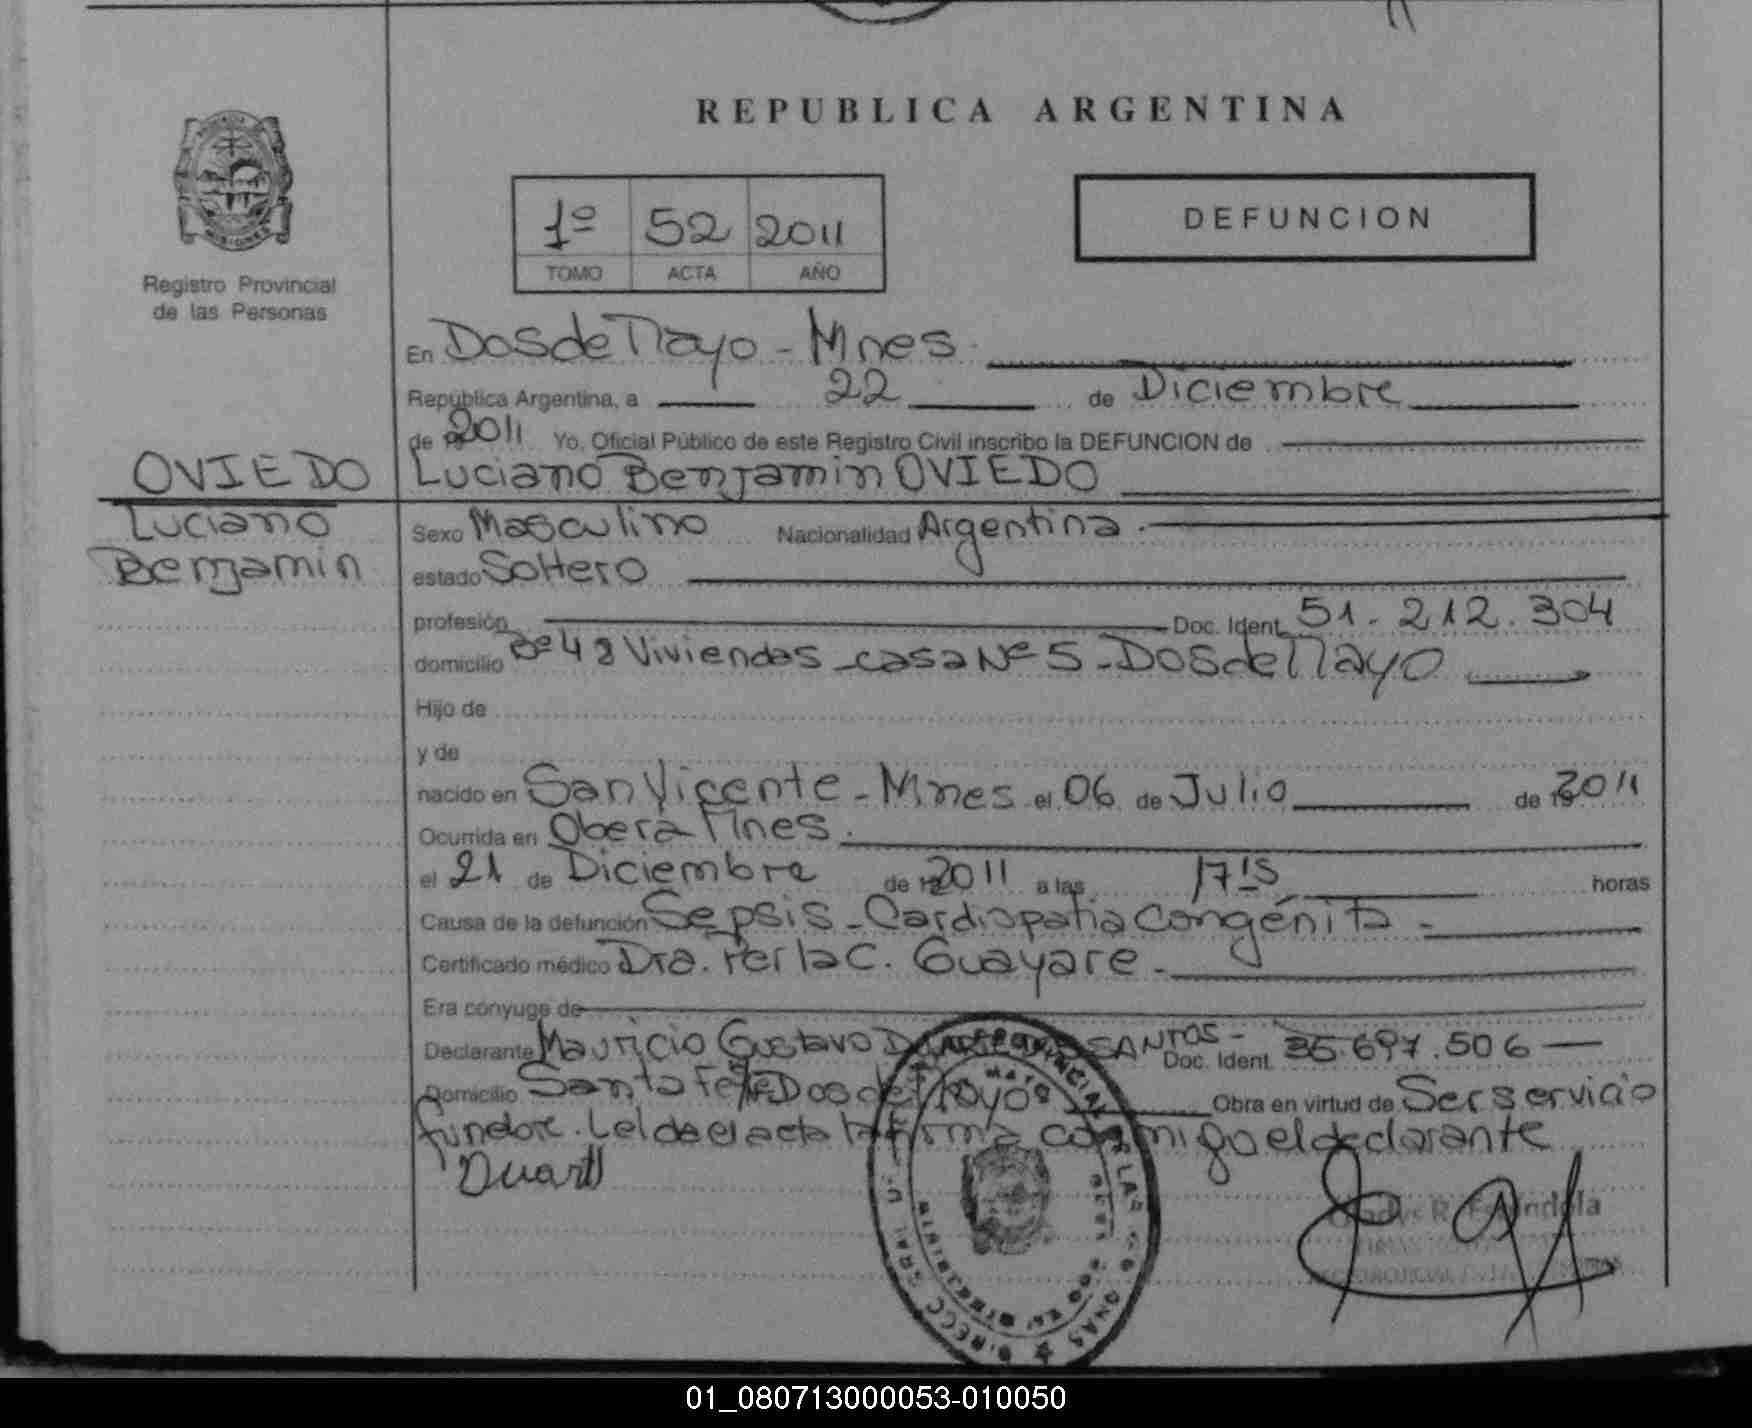 REPUBLICA ARGENTINA
1º 52 2011
TOMO ACTA AÑO
DEFUNCION
Registro Provincial
de las Personas
En Dos de Mayo - Mnes
República Argentina, a 22 de Diciembre
de 2011 Yo, Oficial Público de este Registro Civil inscribo la DEFUNCION de
OVIEDO
Luciano
Benjamin
Luciano Benjamin OVIEDO
Sexo Masculino Nacionalidad Argentina.
estado Soltero
profesión Doc. Ident. 51.212.304
domicilio Bº 48 Viviendas - casa Nº 5 - Dos de Mayo
Hijo de
y de
nacido en San Vicente - Mnes el 06 de Julio de 2011
Ocurrida en Obera Mnes.
el 21 de Diciembre de 2011 a las 17 15 horas
Causa de la defunción Sepsis - Cardiopatia Congénita -
Certificado médico Dra. Perla C. Guayare -
Era cónyuge de
Declarante Mauricio Gustavo SANTOS - Doc. Ident. 35.697.506
Domicilio Santa Fe Dos de Mayo Obra en virtud de Ser servicio
funebre. Leida el acta la firma conmigo el declarante
Duarte
Gladys R.
01_080713000053-010050